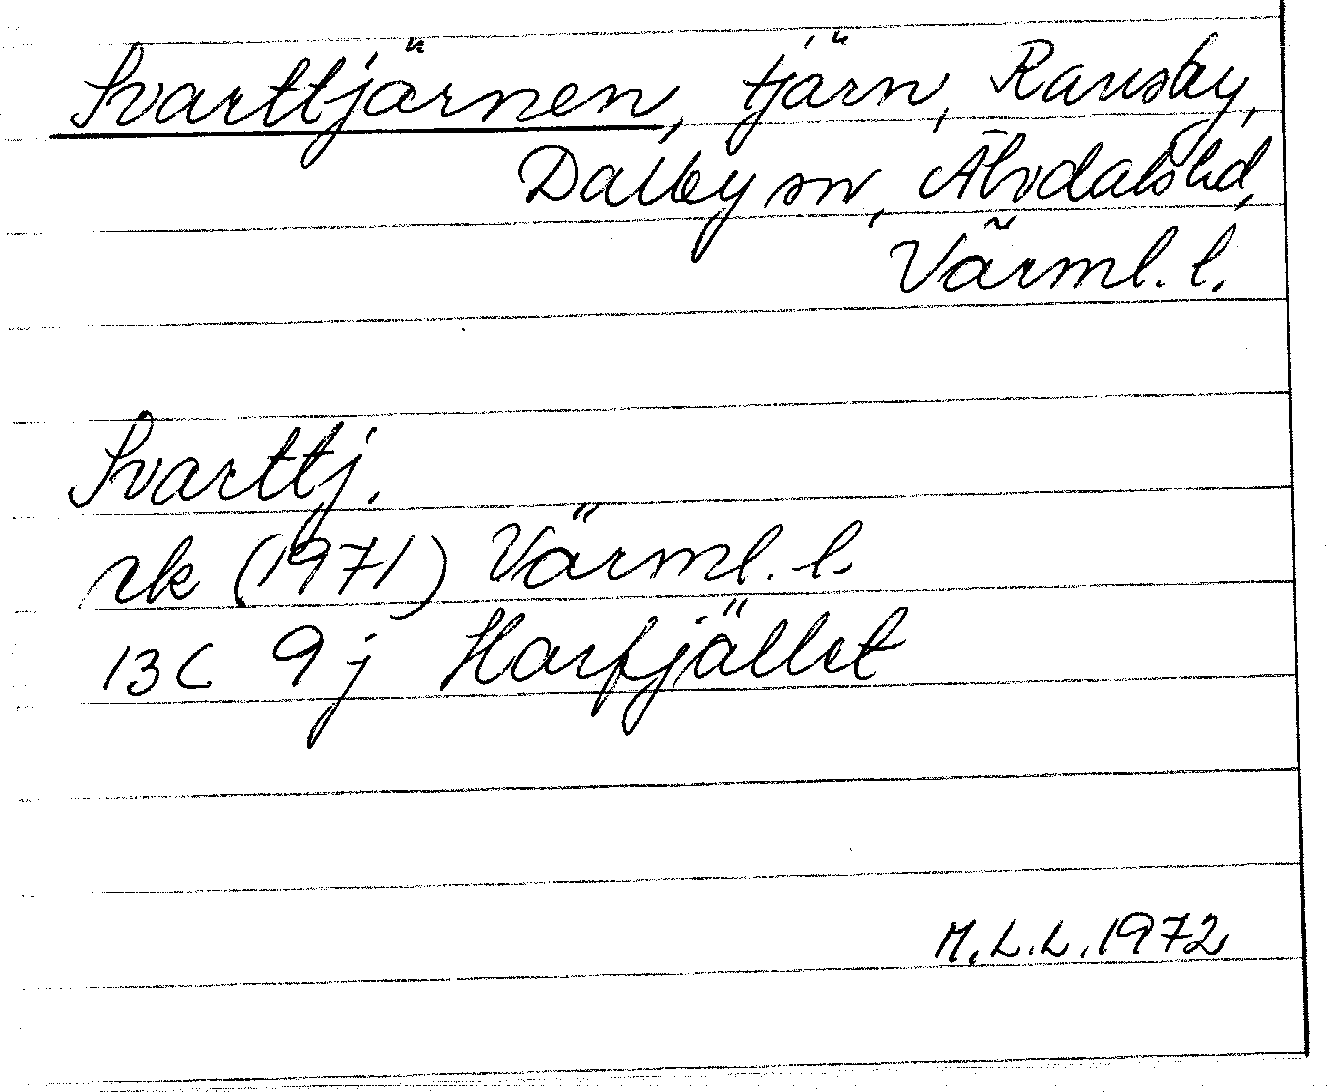 Svarttjärnen, tjärn, Ransby,
Dalby sn, Älvdals hd,
Värml. l.
Svarttj.
rk (1971) Värml. l.
13C 9j Harfjället
M.L.L. 1972